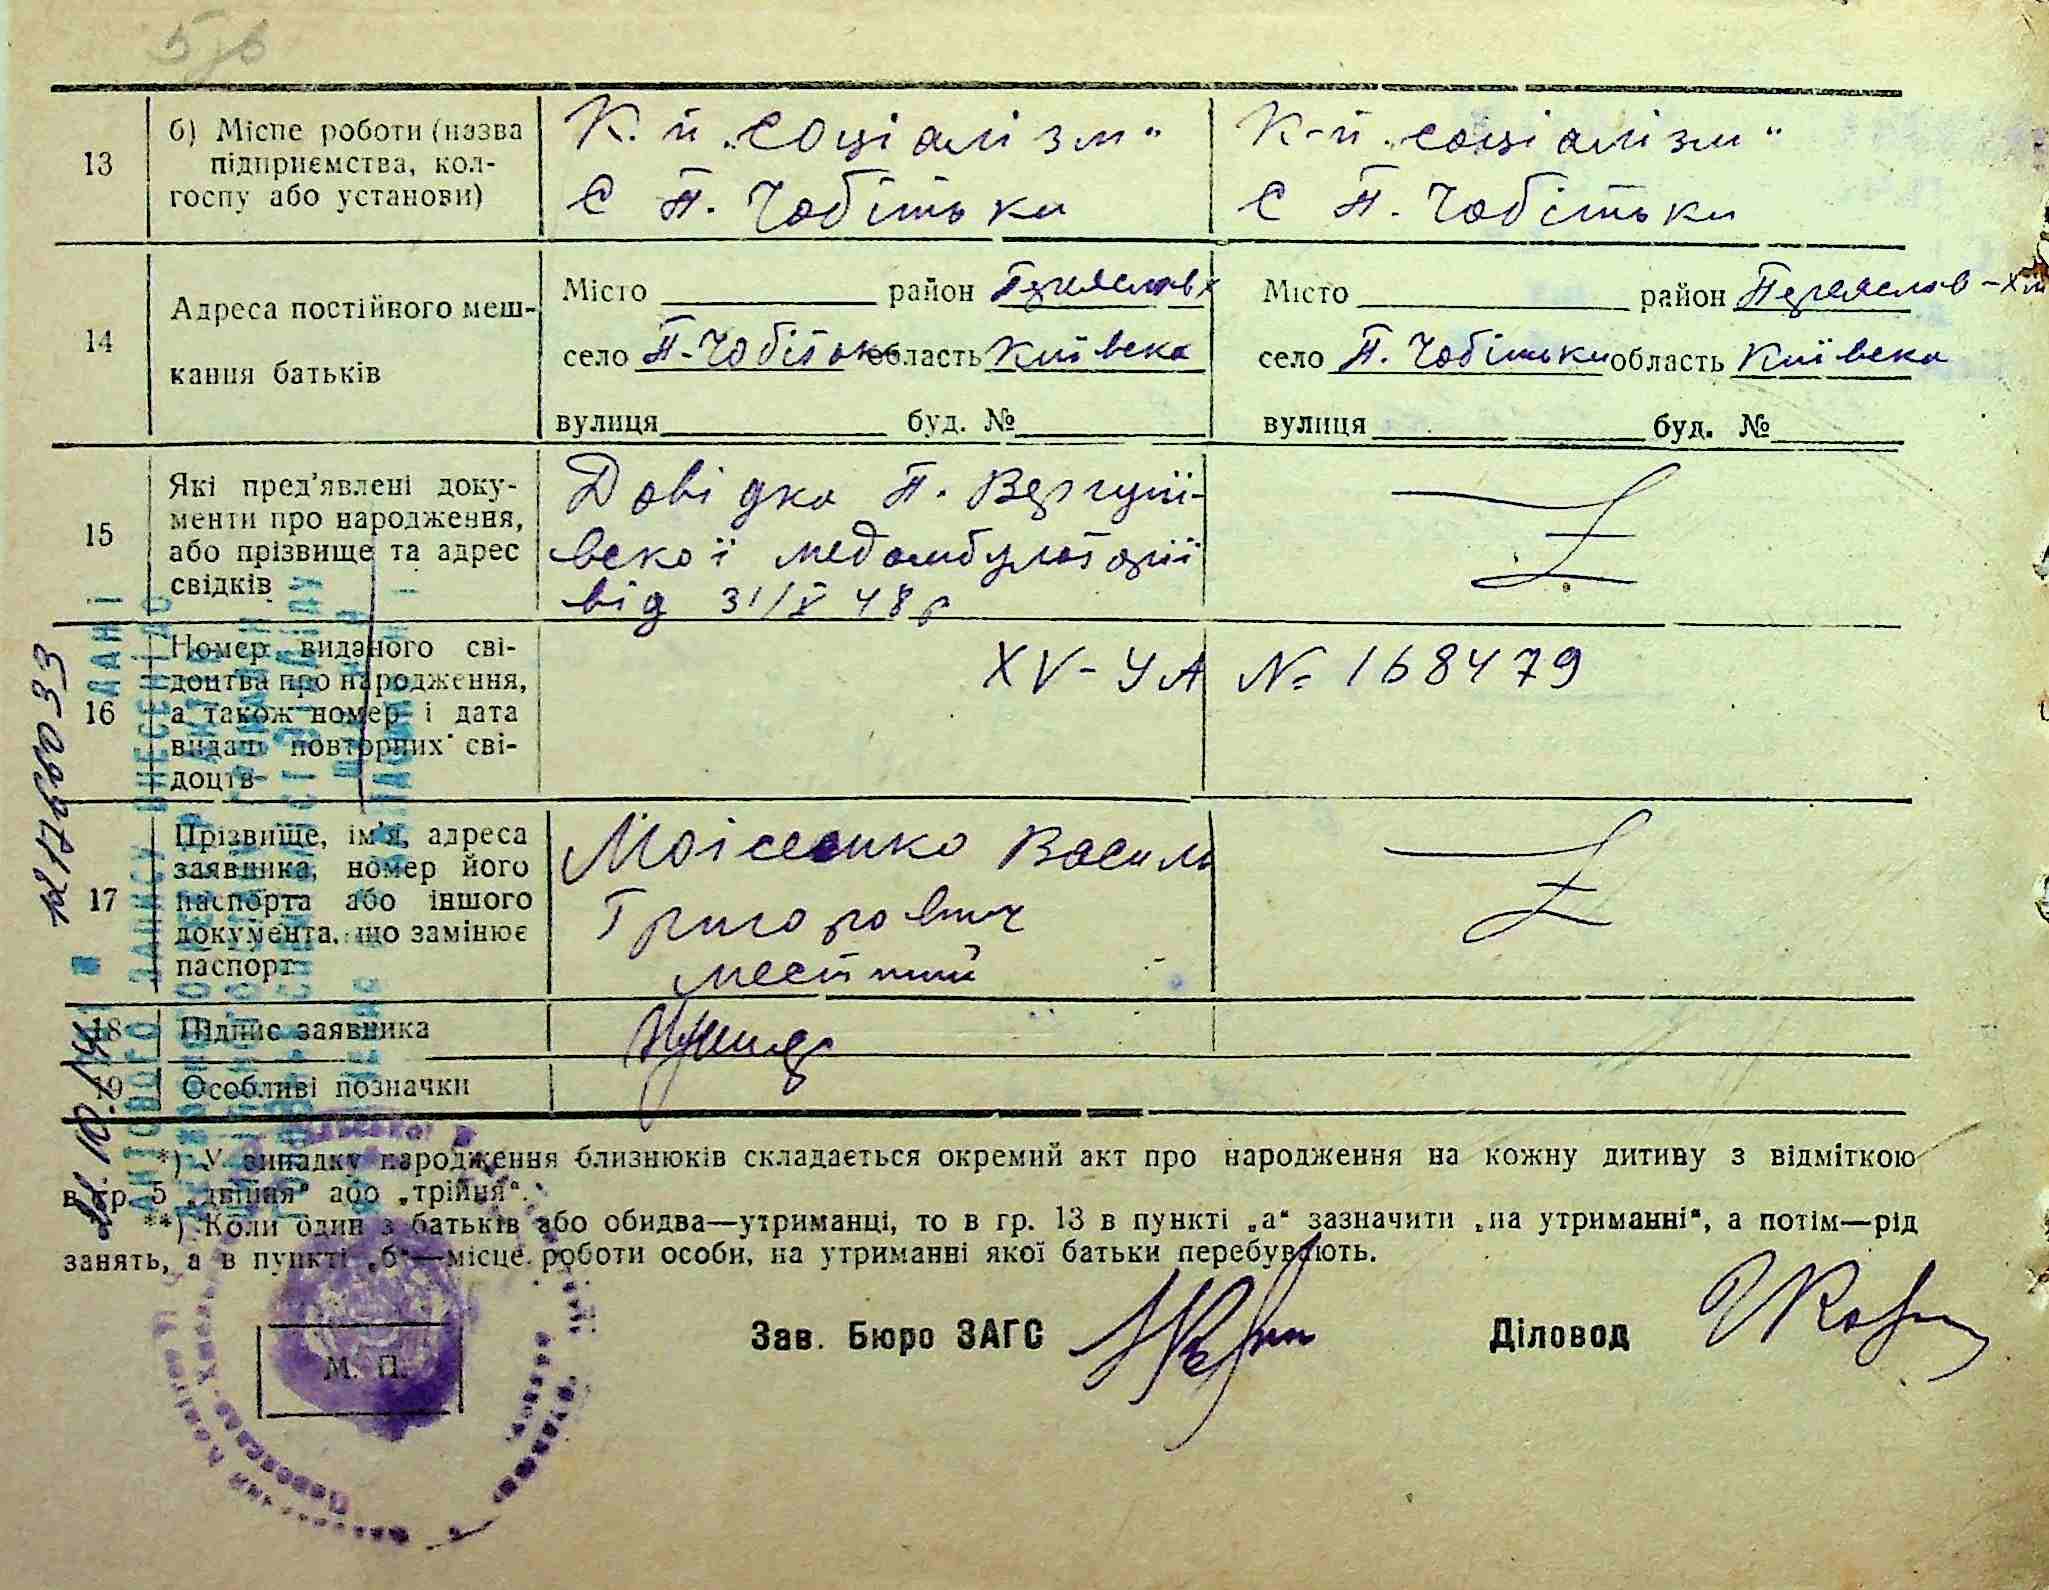 13
б) Місце роботи (назва підприємства, колгоспу або установи)
К. п „Соціалізм"
с П. Чобітьки
К-п „Соціалізм"
с П. Чобітьки
14
Адреса постійного меш-
кання батьків
Місто район Переяслав Х
село П-Чобітьк область Київська
вулиця буд. №
Місто район Переяслав-Хм
село П. Чобітьки область Київська
вулиця буд. №
15
Які пред'явлені доку-
менти про народження,
або прізвище та адрес
свідків
Довідка П. Вергуні-
вської медамбулаторії
від 31/X 48 р
16
Номер виданого сві-
доцтва про народження,
а також номер і дата
видачі повторних сві-
доцтв
XV-УА № 168479
17
Прізвище, ім'я, адреса
заявника, номер його
паспорта або іншого
документа, що замінює
паспорт
Моісеенко Василь
Григорович
местний
18
Підпис заявника
19
Особливі позначки
*) У випадку народження близнюків складається окремий акт про народження на кожну дитину з відміткою
в гр. 5 „двійня" або „трійня".
**) Коли один з батьків або обидва—утриманці, то в гр. 13 в пункті „а" зазначити „на утриманні", а потім—рід
занять, а в пункті „б"—місце роботи особи, на утриманні якої батьки перебувають.
М. П.
Зав. Бюро ЗАГС
Діловод